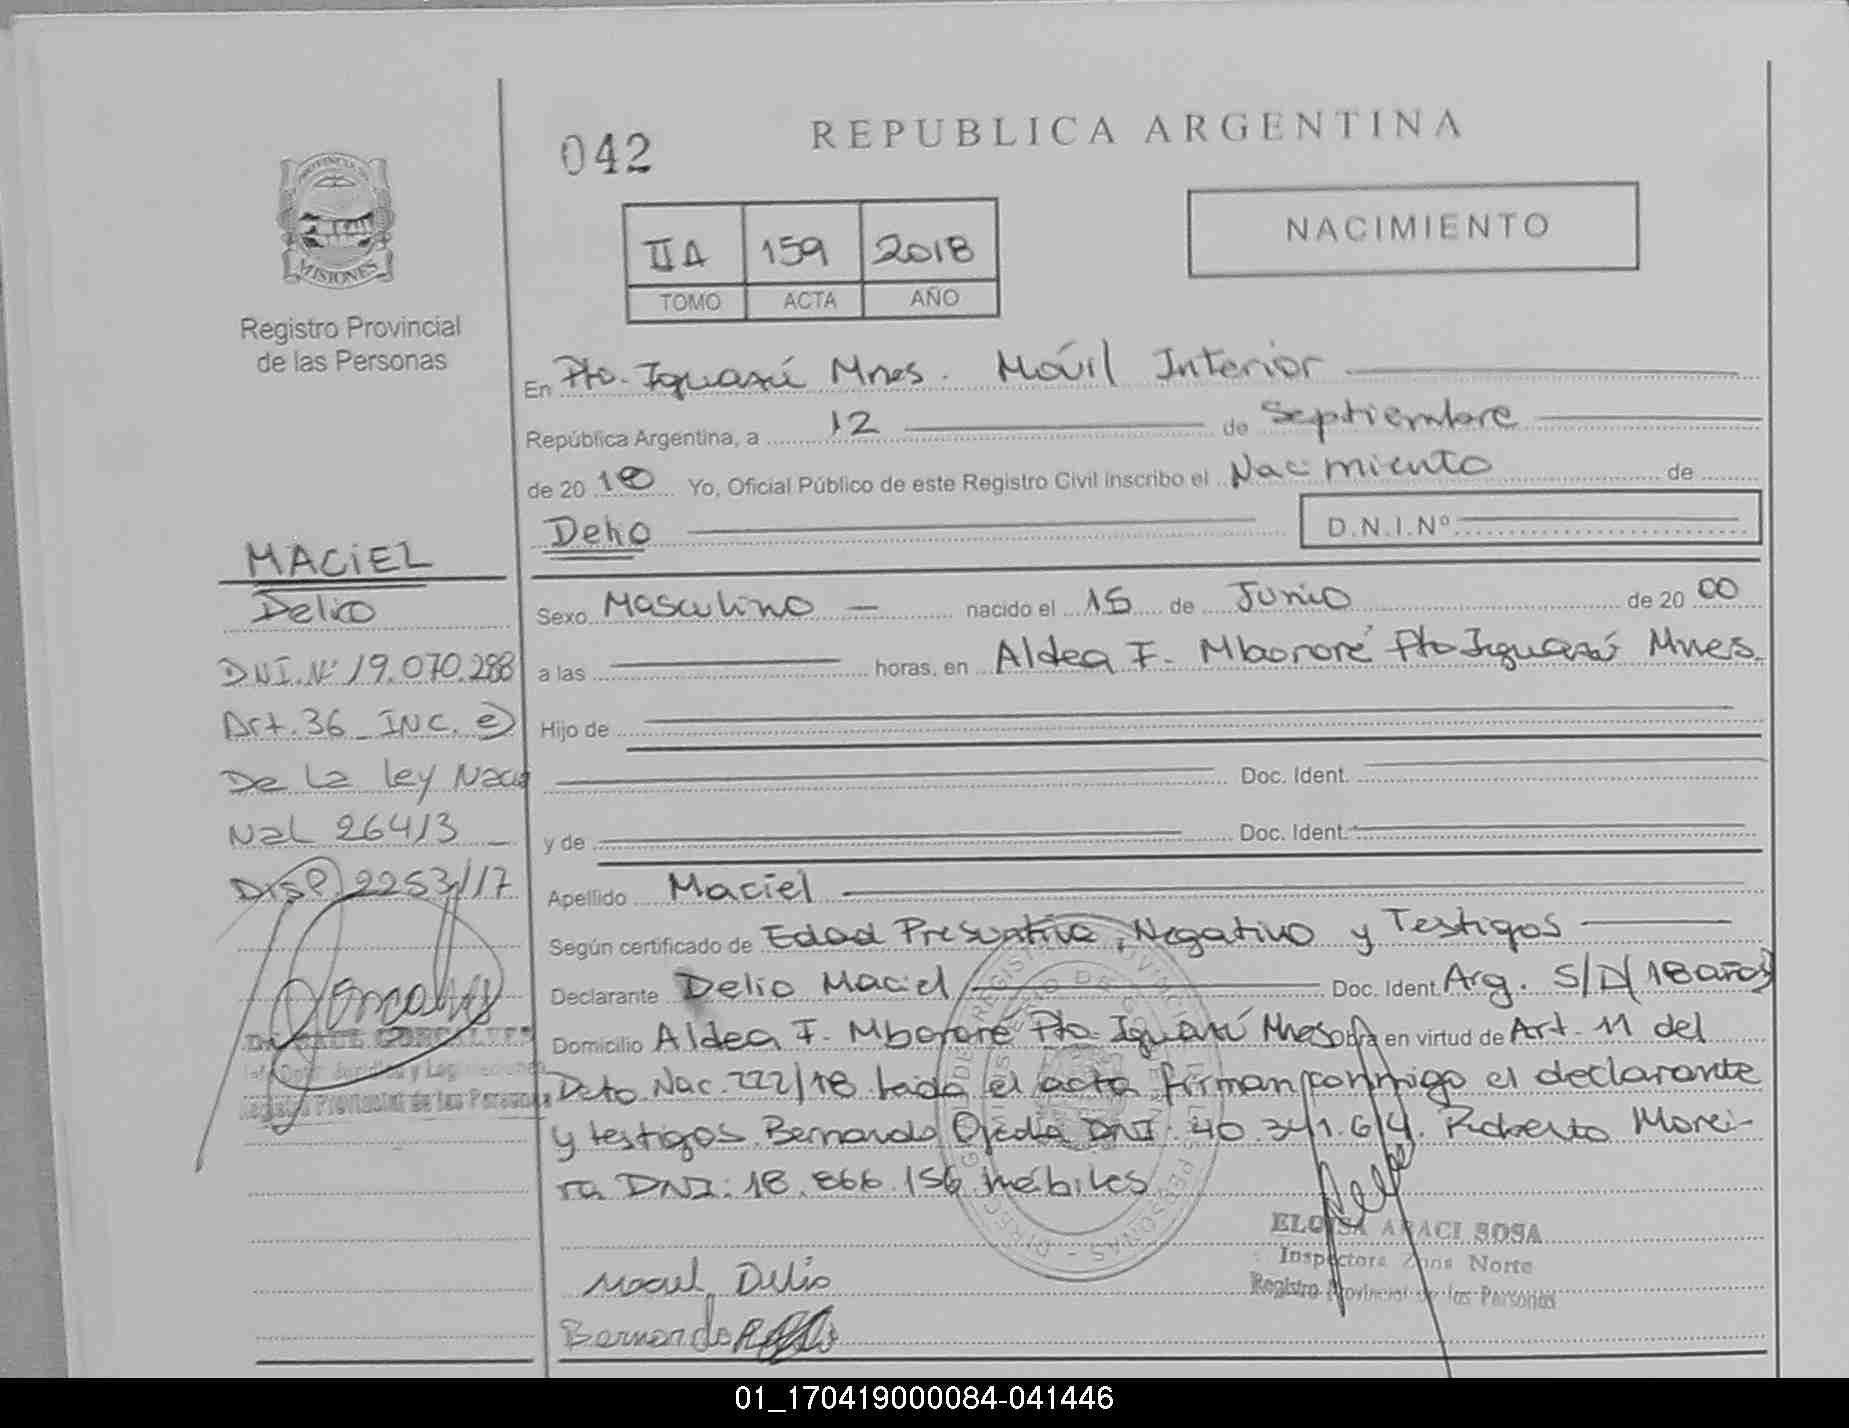 REPUBLICA ARGENTINA
042
NACIMIENTO
IIA 159 2018
TOMO ACTA AÑO
PROVINCIA DE
MISIONES
Registro Provincial
de las Personas
En Pto. Iguazú Mnes. Móvil Interior
República Argentina, a 12 de Septiembre
de 20 18 Yo, Oficial Público de este Registro Civil inscribo el Nacimiento de
Delio D.N.I.Nº
MACIEL
Delio
DNI.Nº 19.070.288
Art. 36_INC. e)
De La Ley Nacio
Nal 26413_
DISP. 2253/17
Sexo Masculino — nacido el 15 de Junio de 20 00
a las horas, en Aldea F. Mbororé Pto Iguazú Mnes.
Hijo de
Doc. Ident.
y de Doc. Ident.
Apellido Maciel
Según certificado de Edad Presuntiva, Negativo y Testigos
Declarante Delio Maciel Doc. Ident. Arg. S/D(18 años)
Domicilio Aldea F. Mbororé Pto. Iguazú Mnes obra en virtud de Art. 11 del
Dcto. Nac. 222/18 leida el acta firman conmigo el declarante
y testigos Bernardo Ojeda DNI: 40.341.614. Roberto Morei-
ra DNI: 18.866.156 hábiles
Registro Provincial de las Personas
ELOISA ARACI SOSA
Inspectora Zona Norte
Registro Provincial de las Personas
Maciel Delio
Bernardo
01_170419000084-041446